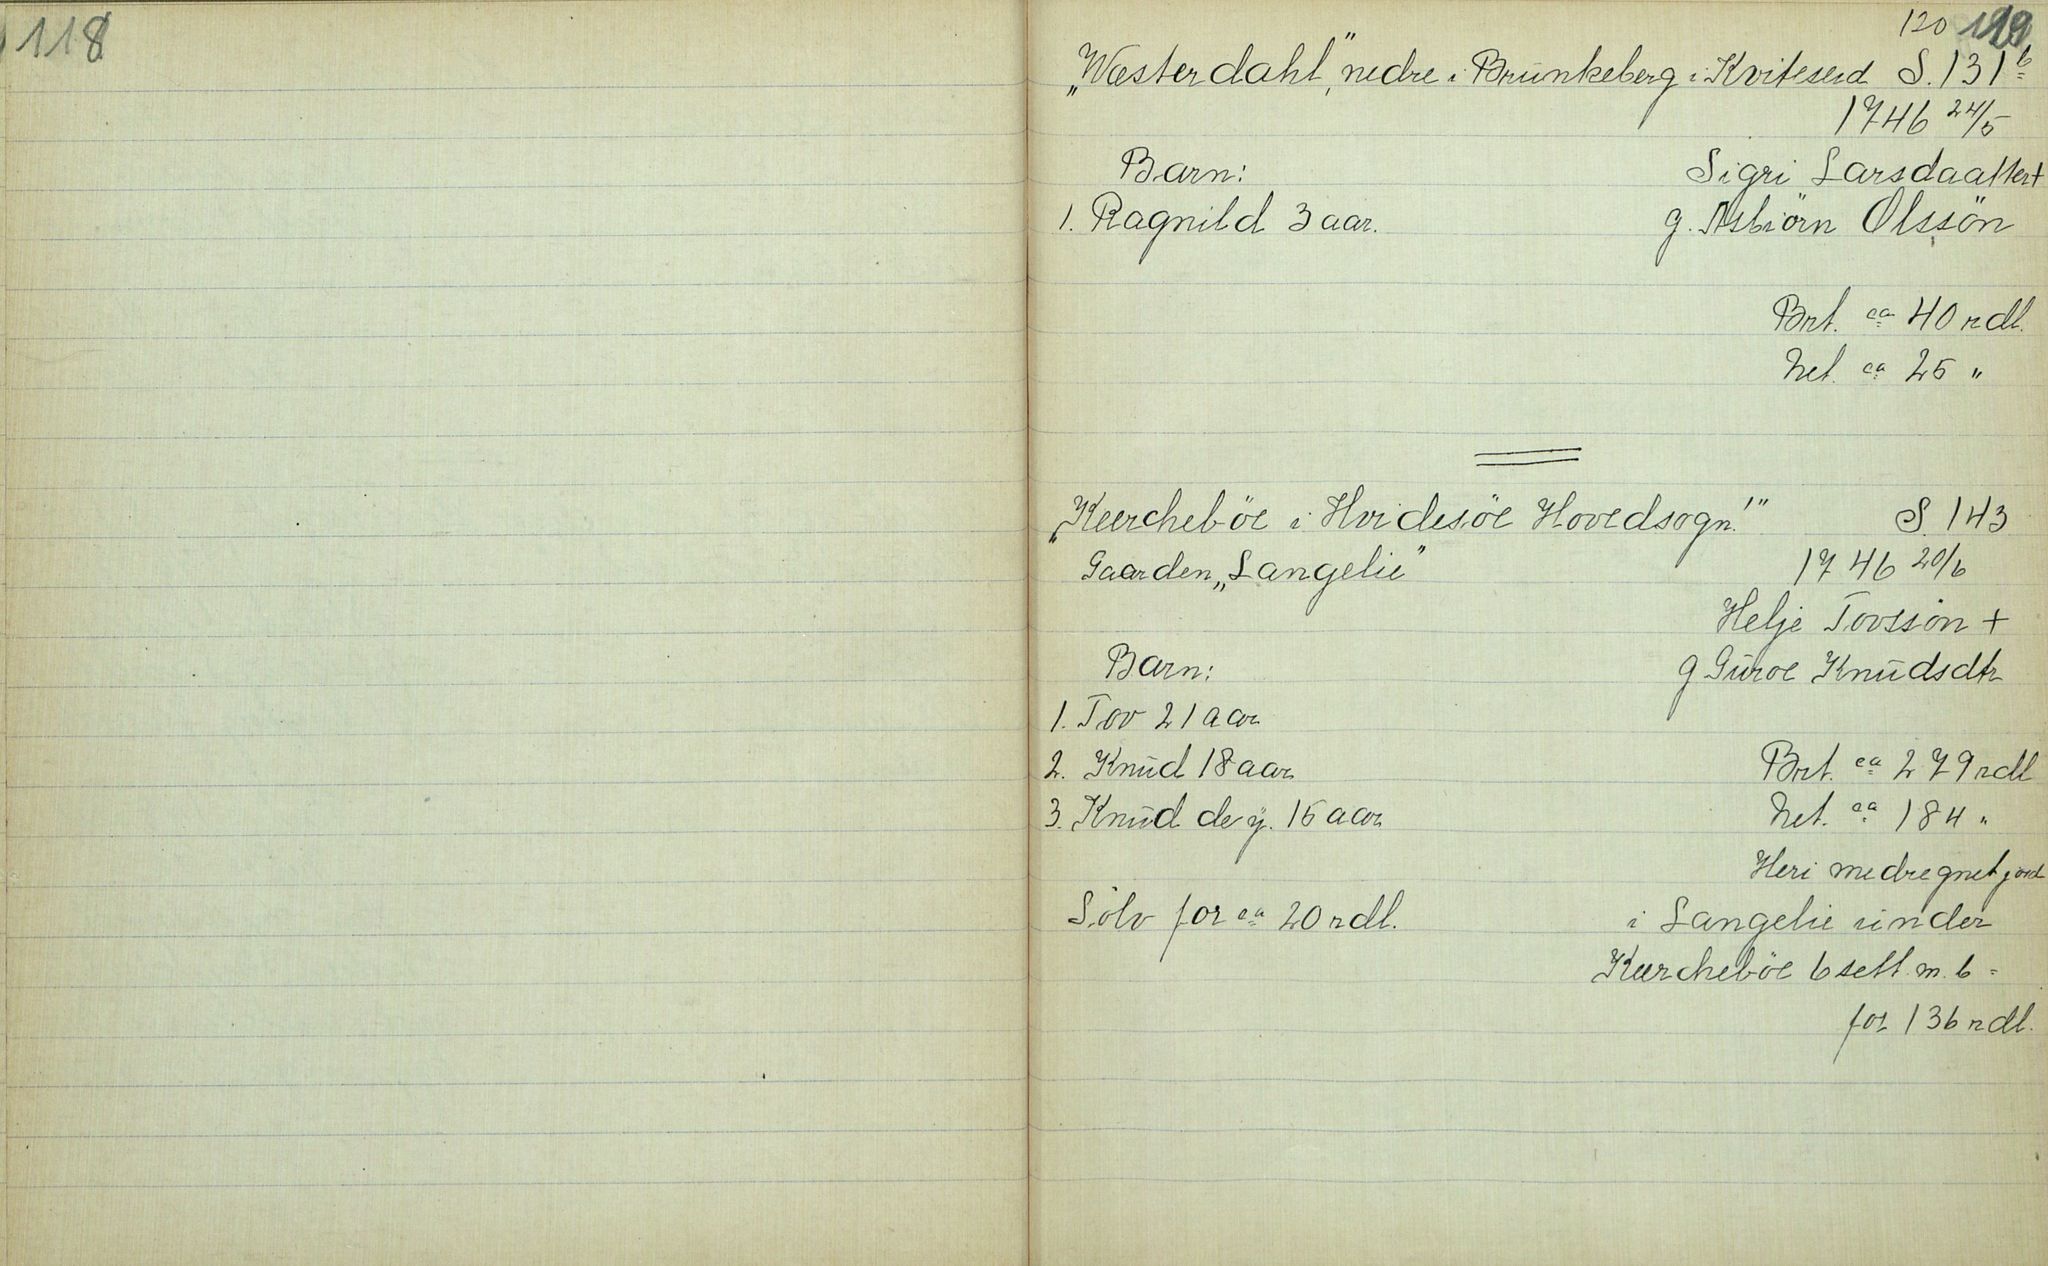 118
120 119
„Wæsterdahl", nedre i Brunkeberg i Kviteseid S. 131 b
1746 24/5
Barn: Sigri Larsdaatter +
1. Ragnild 3 aar. g. Asbiörn Olssön
Brt. ca 40 rdl.
Net. ca 25 "
„Kierkeböe i Hvidesöe Hovedsogn!" S. 143
Gaarden „Langelie" 1746 20/6
Helje Tovssön +
Barn: g Guroe Knudsdtr
1. Tov 21 aar
2. Knud 18 aar Brt. ca 279 rdl
3. Knud de y. 15 aar Net. ca 184 "
Heri medregnet jord
Sölv for ca 20 rdl. i Langelie under
Kiercheböe 6 sett. m. b =
for 136 rdl.